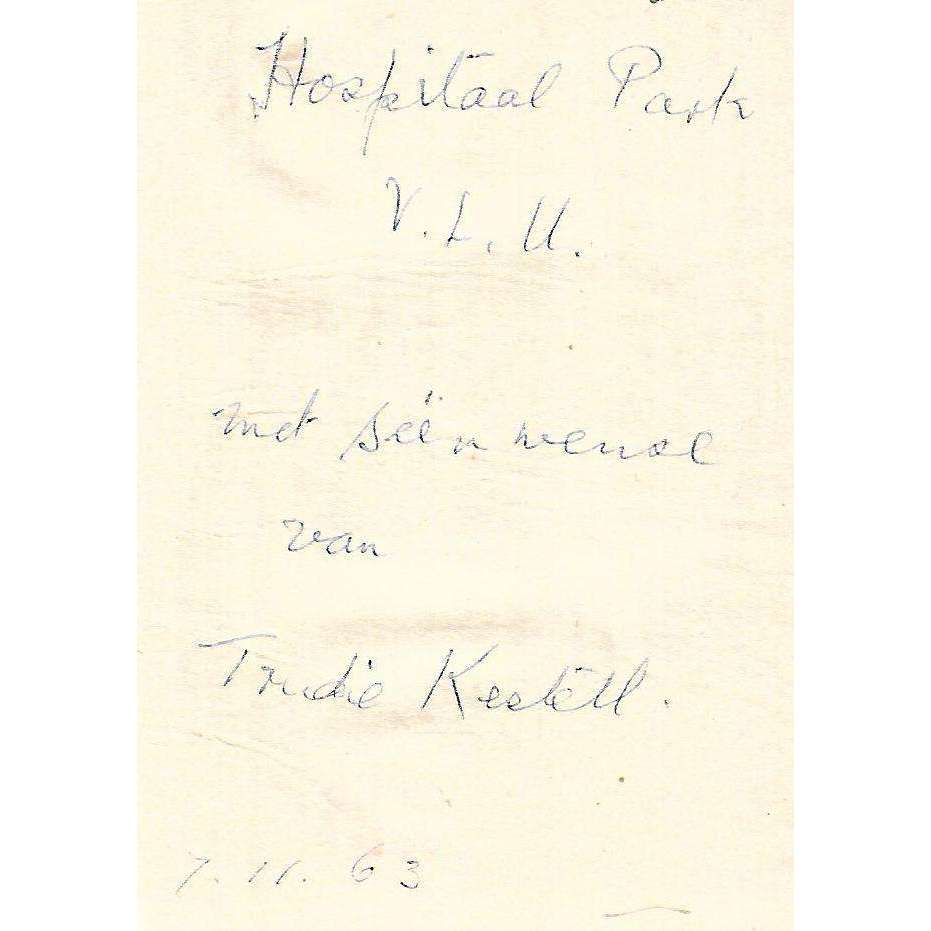 Hospitaal Park
V.L.U.
met seën wense
van
Trudie Kestell.
7.11.63